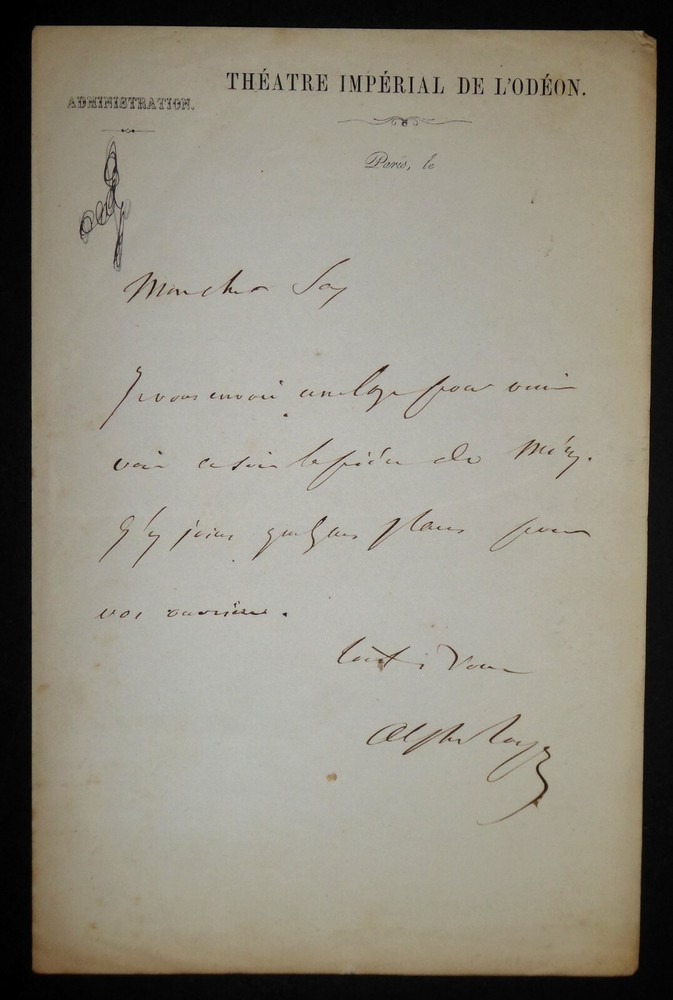 THÉATRE IMPÉRIAL DE L'ODÉON.
ADMINISTRATION.
Paris, le
Mon cher Say
Je vous envoie une loge pour venir
voir ce soir la pièce de Méry.
J'y joins quelques places pour
vos ouvrières.
tout à vous
Alph Royer